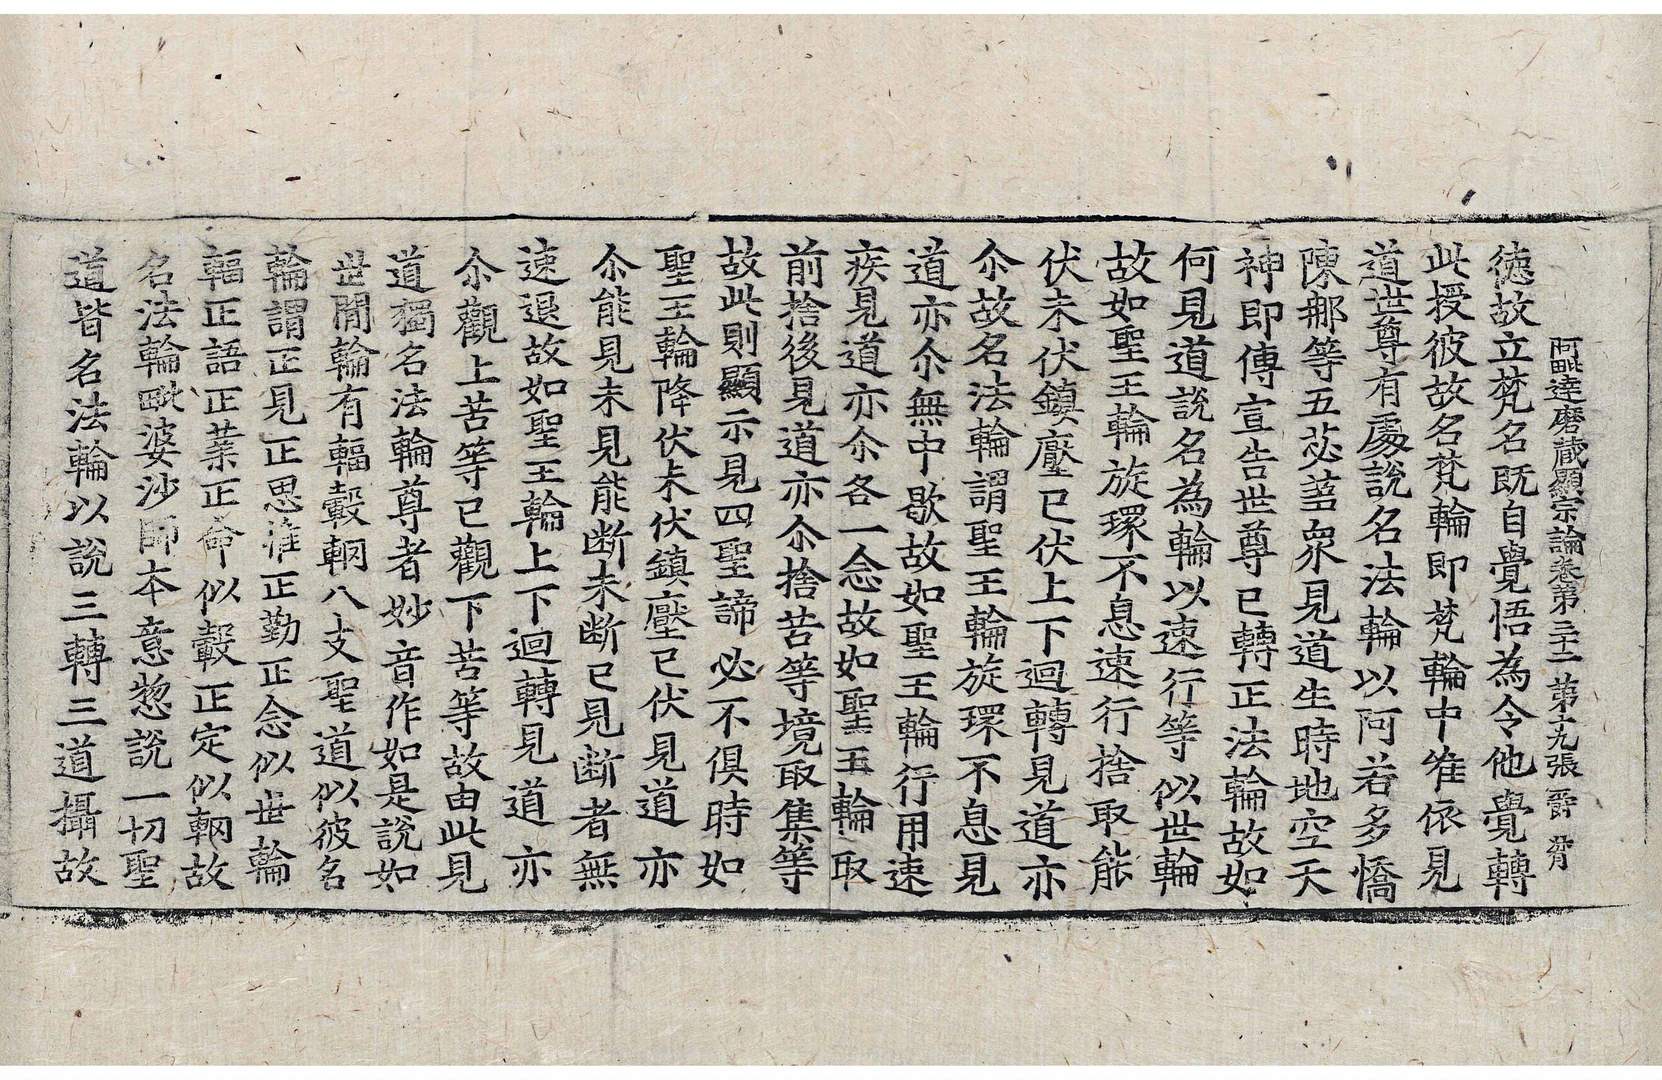 阿毗達磨藏顯宗論卷第三十一 第十九張 爵
德故立梵名旣自覺悟為令他覺轉
此授彼故名梵輪即梵輪中唯依見
道世尊有處說名法輪以阿若多憍
陳那等五苾蒭衆見道生時地空天
神即傳宣告世尊已轉正法輪故如
何見道說名為輪以速行等似世輪
故如聖王輪旋環不息速行捨取能
伏未伏鎮壓已伏上下迴轉見道亦
尒故名法輪謂聖王輪旋環不息見
道亦尒無中歇故如聖王輪行用速
疾見道亦尒各一念故如聖王輪取
前捨後見道亦尒捨苦等境取集等
故此則顯示見四聖諦必不俱時如
聖王輪降伏未伏鎮壓已伏見道亦
尒能見未見能断未断已見断者無
速退故如聖王輪上下迴轉見道亦
尒觀上苦等已觀下苦等故由此見
道獨名法輪尊者妙音作如是說如
世閒輪有輻轂輞八支聖道似彼名
輪謂正見正思惟正勤正念似世輪
輻正語正業正命似轂正定似輞故
名法輪毗婆沙師本意惣說一切聖
道皆名法輪以說三轉三道攝故